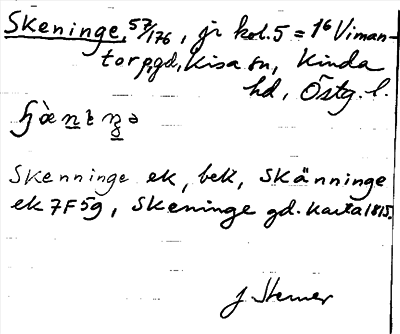 Skeninge, 57/176, jr kol. 5 = 1⁶ Viman-
torp, gd, Kisa sn, Kinda
hd, Östg. l.
Skenninge ek, bek, Skänninge
ek 7F 5g, Skeninge gd. Karta 1815.
J. Sterner